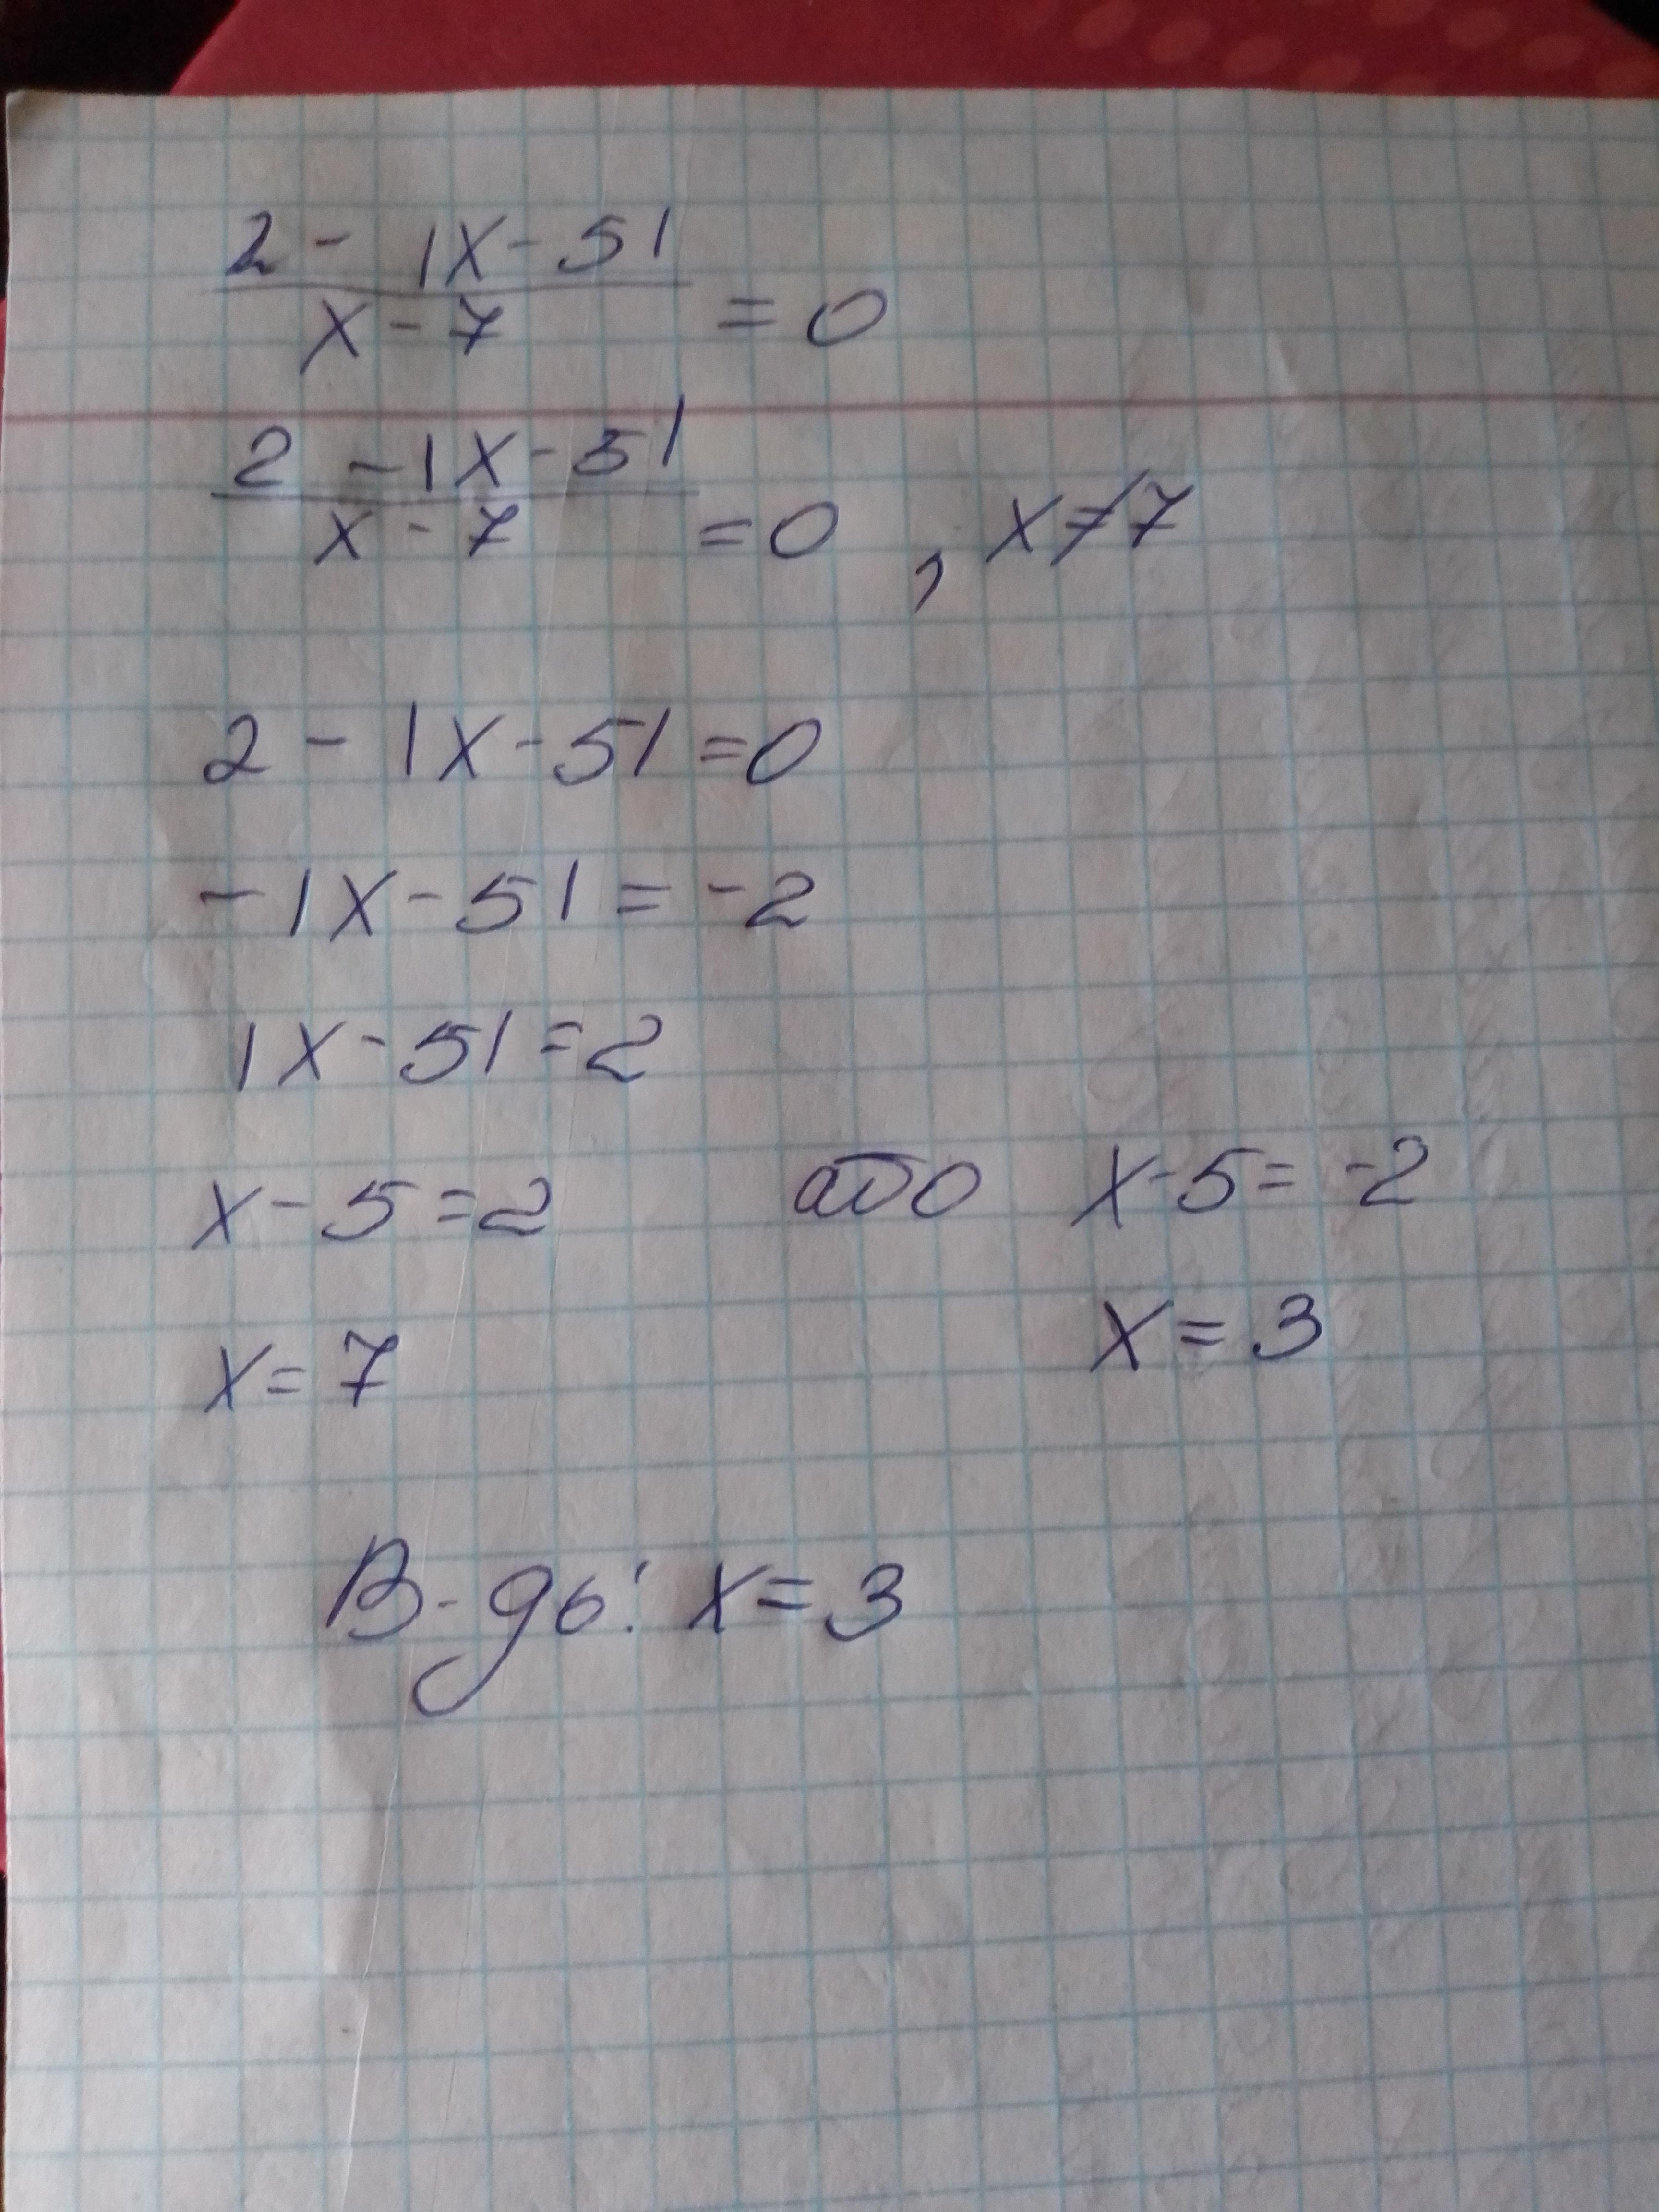 2 - |x - 5|
x - 7 = 0
2 - |x - 5|
x - 7 = 0 , x ≠ 7
2 - |x - 5| = 0
- |x - 5| = -2
|x - 5| = 2
x - 5 = 2 або x - 5 = -2
x = 7 x = 3
В-дь: x = 3